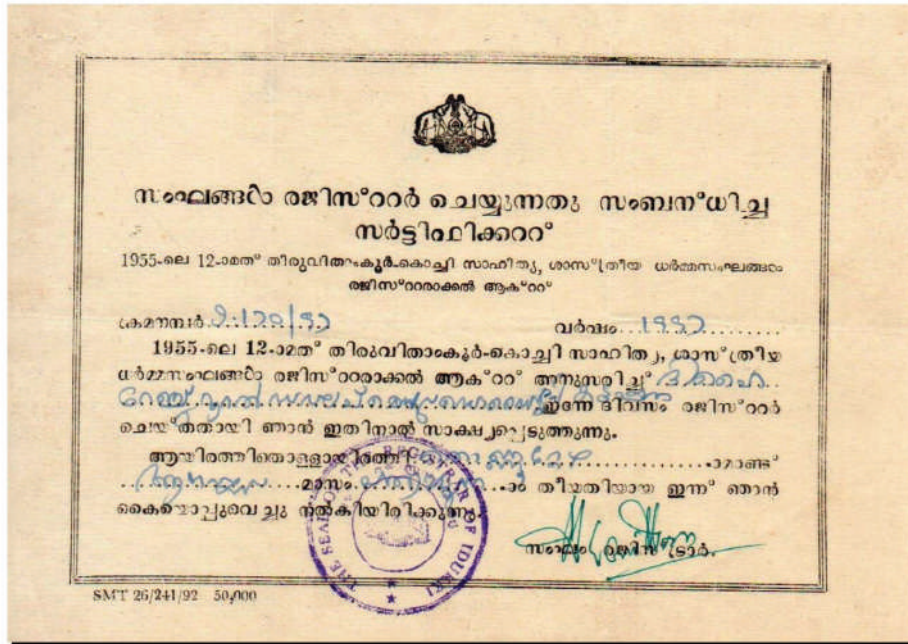 സംഘങ്ങൾ രജിസ്ററർ ചെയ്യുന്നതു സംബന്ധിച്ച
സർട്ടിഫിക്കററ്
1955-ലെ 12-ാമത് തിരുവിതാംകൂർ-കൊച്ചി സാഹിത്യ, ശാസ്ത്രീയ ധർമ്മസംഘങ്ങൾ
രജിസ്ററരാക്കൽ ആക്ററ്
ക്രമനമ്പർ വർഷം 1997
1955-ലെ 12-ാമത് തിരുവിതാംകൂർ-കൊച്ചി സാഹിത്യ, ശാസ്ത്രീയ
ധർമ്മസംഘങ്ങൾ രജിസ്ററരാക്കൽ ആക്ററ് അനുസരിച്ച് ദി ഹൈ
റേഞ്ച് റൂറൽ ഇന്നേ ദിവസം രജിസ്ററർ
ചെയ്തതായി ഞാൻ ഇതിനാൽ സാക്ഷ്യപ്പെടുത്തുന്നു.
ആയിരത്തിതൊള്ളായിരത്തി ാമാണ്ട്
മാസം ാം തീയതിയായ ഇന്ന് ഞാൻ
കൈയൊപ്പുവെച്ചു നൽകിയിരിക്കുന്നു.
THE SEAL OF THE REGISTRAR OF IDUKKI
സംഘം രജിസ്ട്രാർ.
SMT 26/241/92 50,000